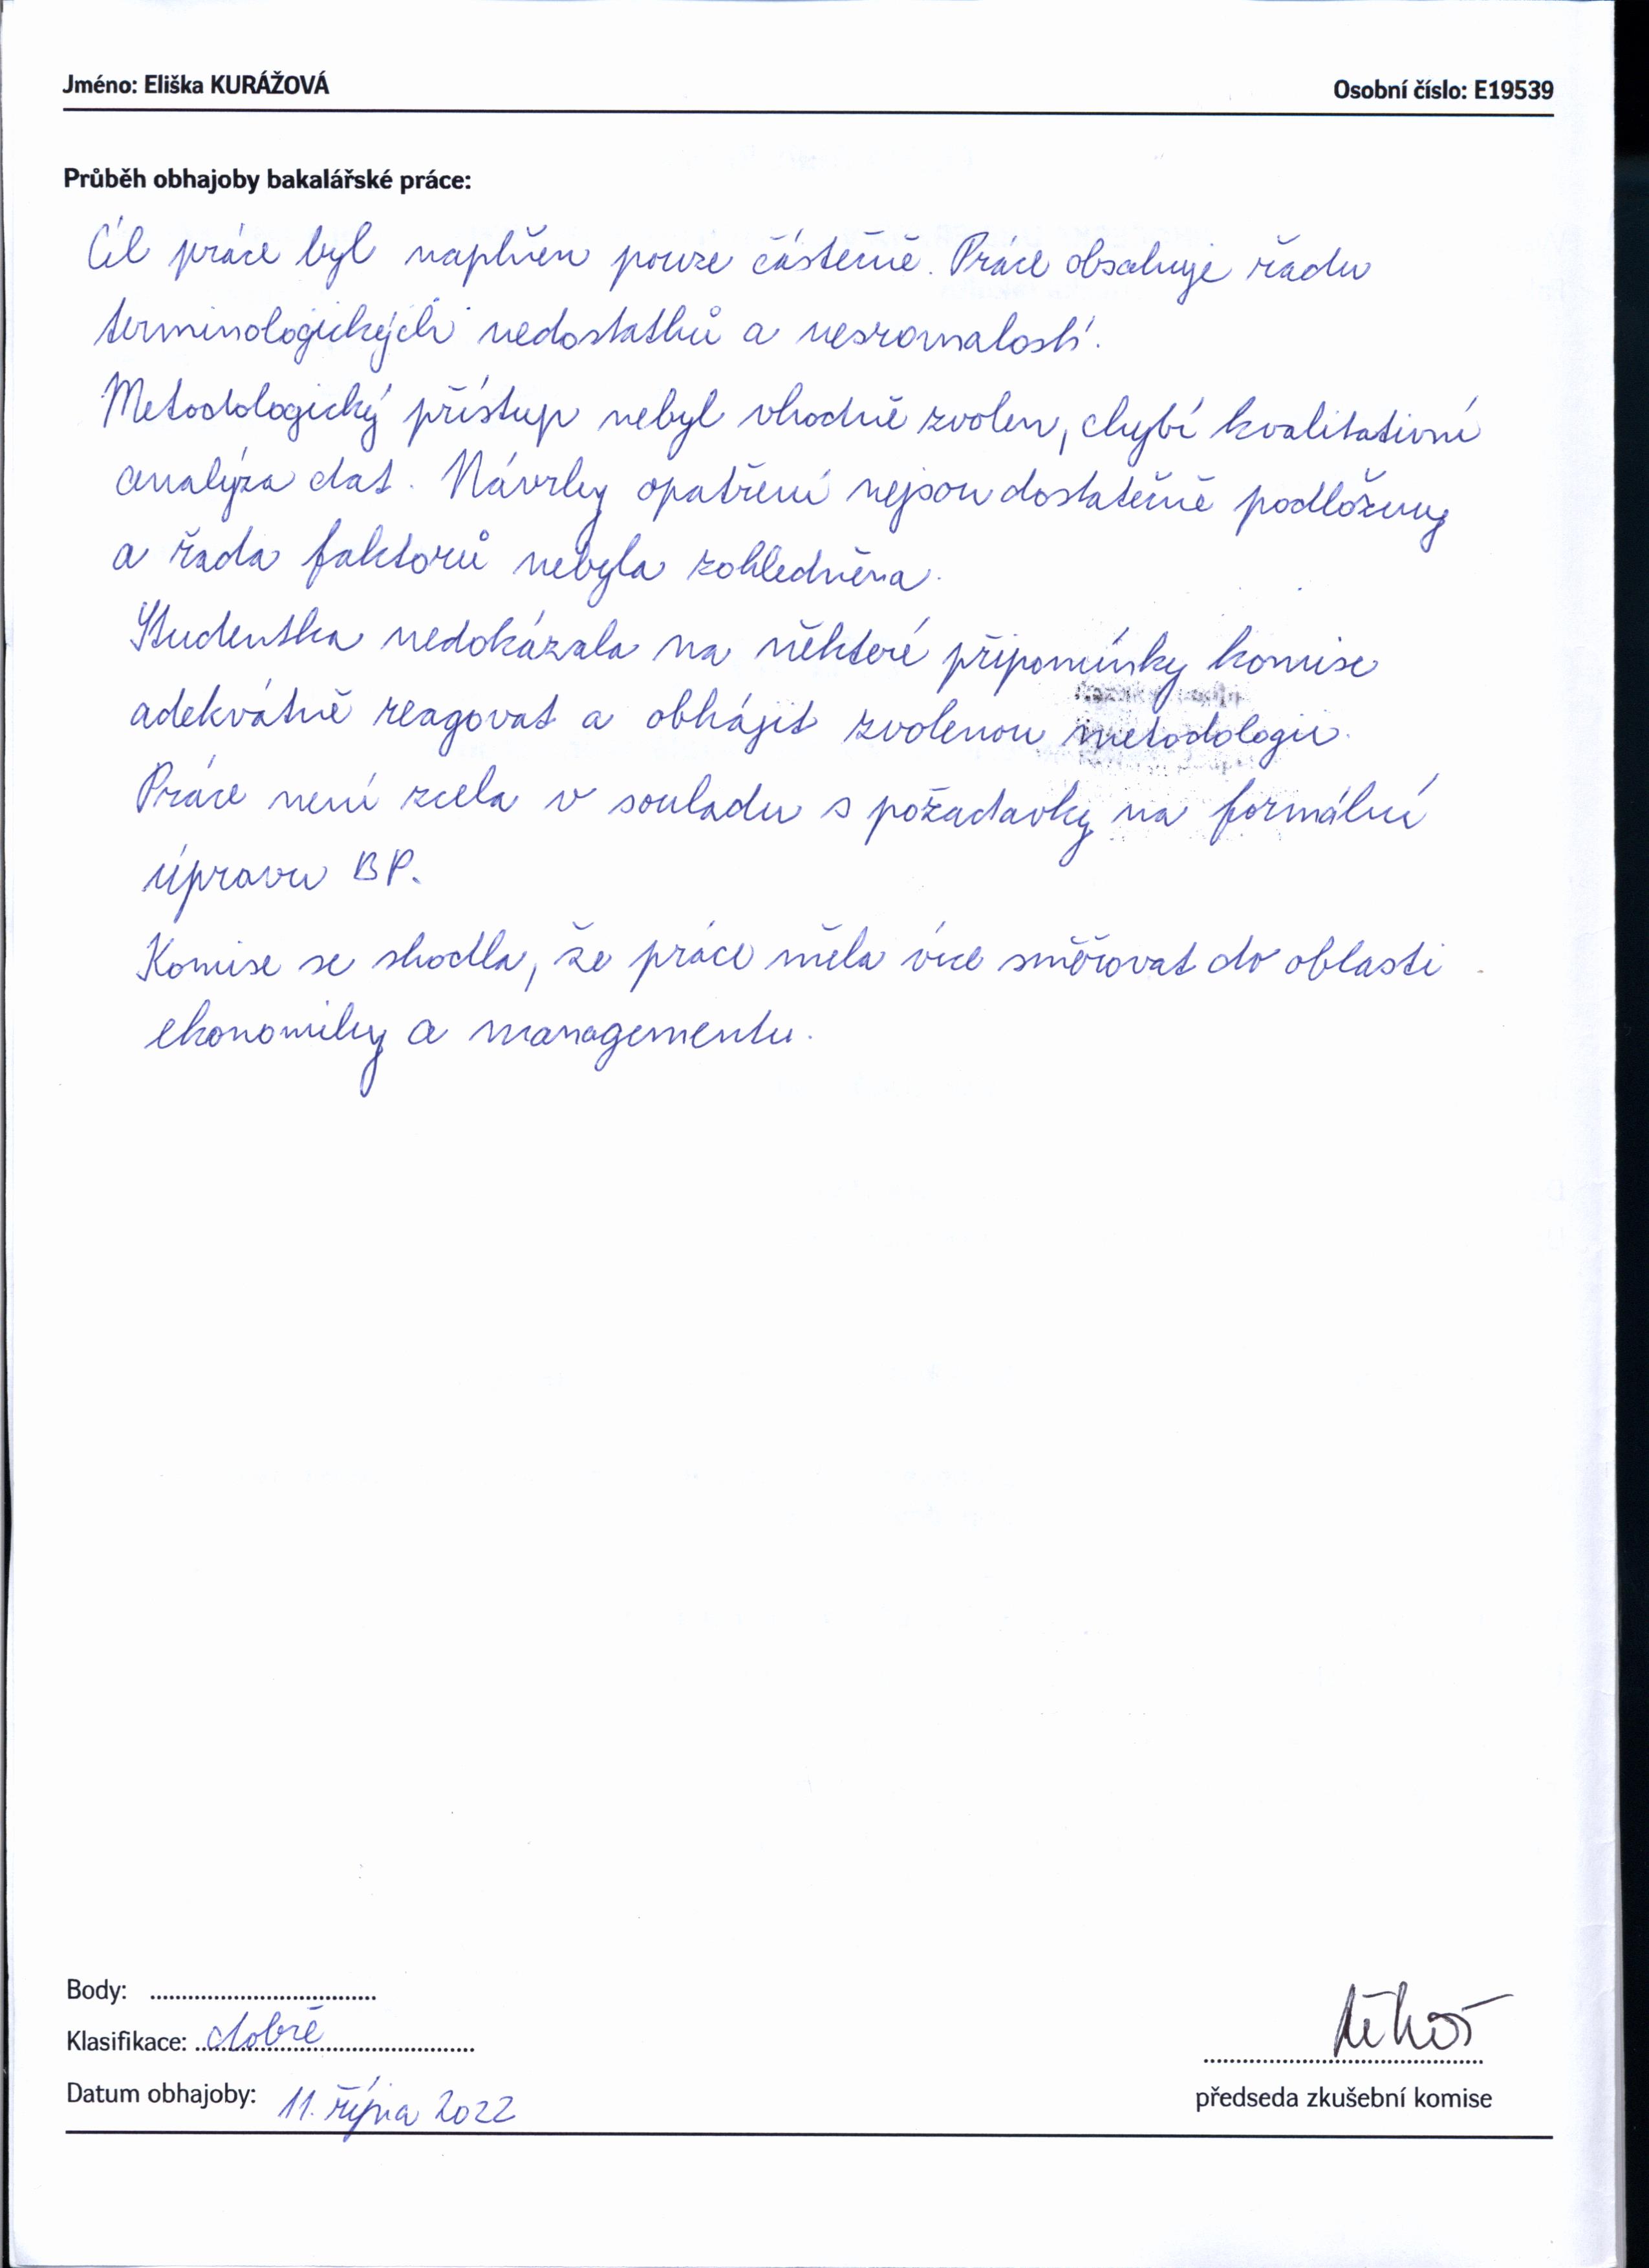 Jméno: Eliška KURÁŽOVÁ
Osobní číslo: E19539
Průběh obhajoby bakalářské práce:
Cíl práce byl naplněn pouze částečně. Práce obsahuje řadu
terminologických nedostatků a nesrovnalostí.
Metodologický přístup nebyl vhodně zvolen, chybí kvalitativní
analýza dat. Návrhy opatření nejsou dostatečně podloženy
a řada faktorů nebyla zohledněna.
Studentka nedokázala na některé připomínky komise
adekvátně reagovat a obhájit zvolenou metodologii.
Práce není zcela v souladu s požadavky na formální
úpravu BP.
Komise se shodla, že práce měla více směřovat do oblasti
ekonomiky a managementu.
Body:
Klasifikace: dobře
Datum obhajoby: 11. října 2022
předseda zkušební komise